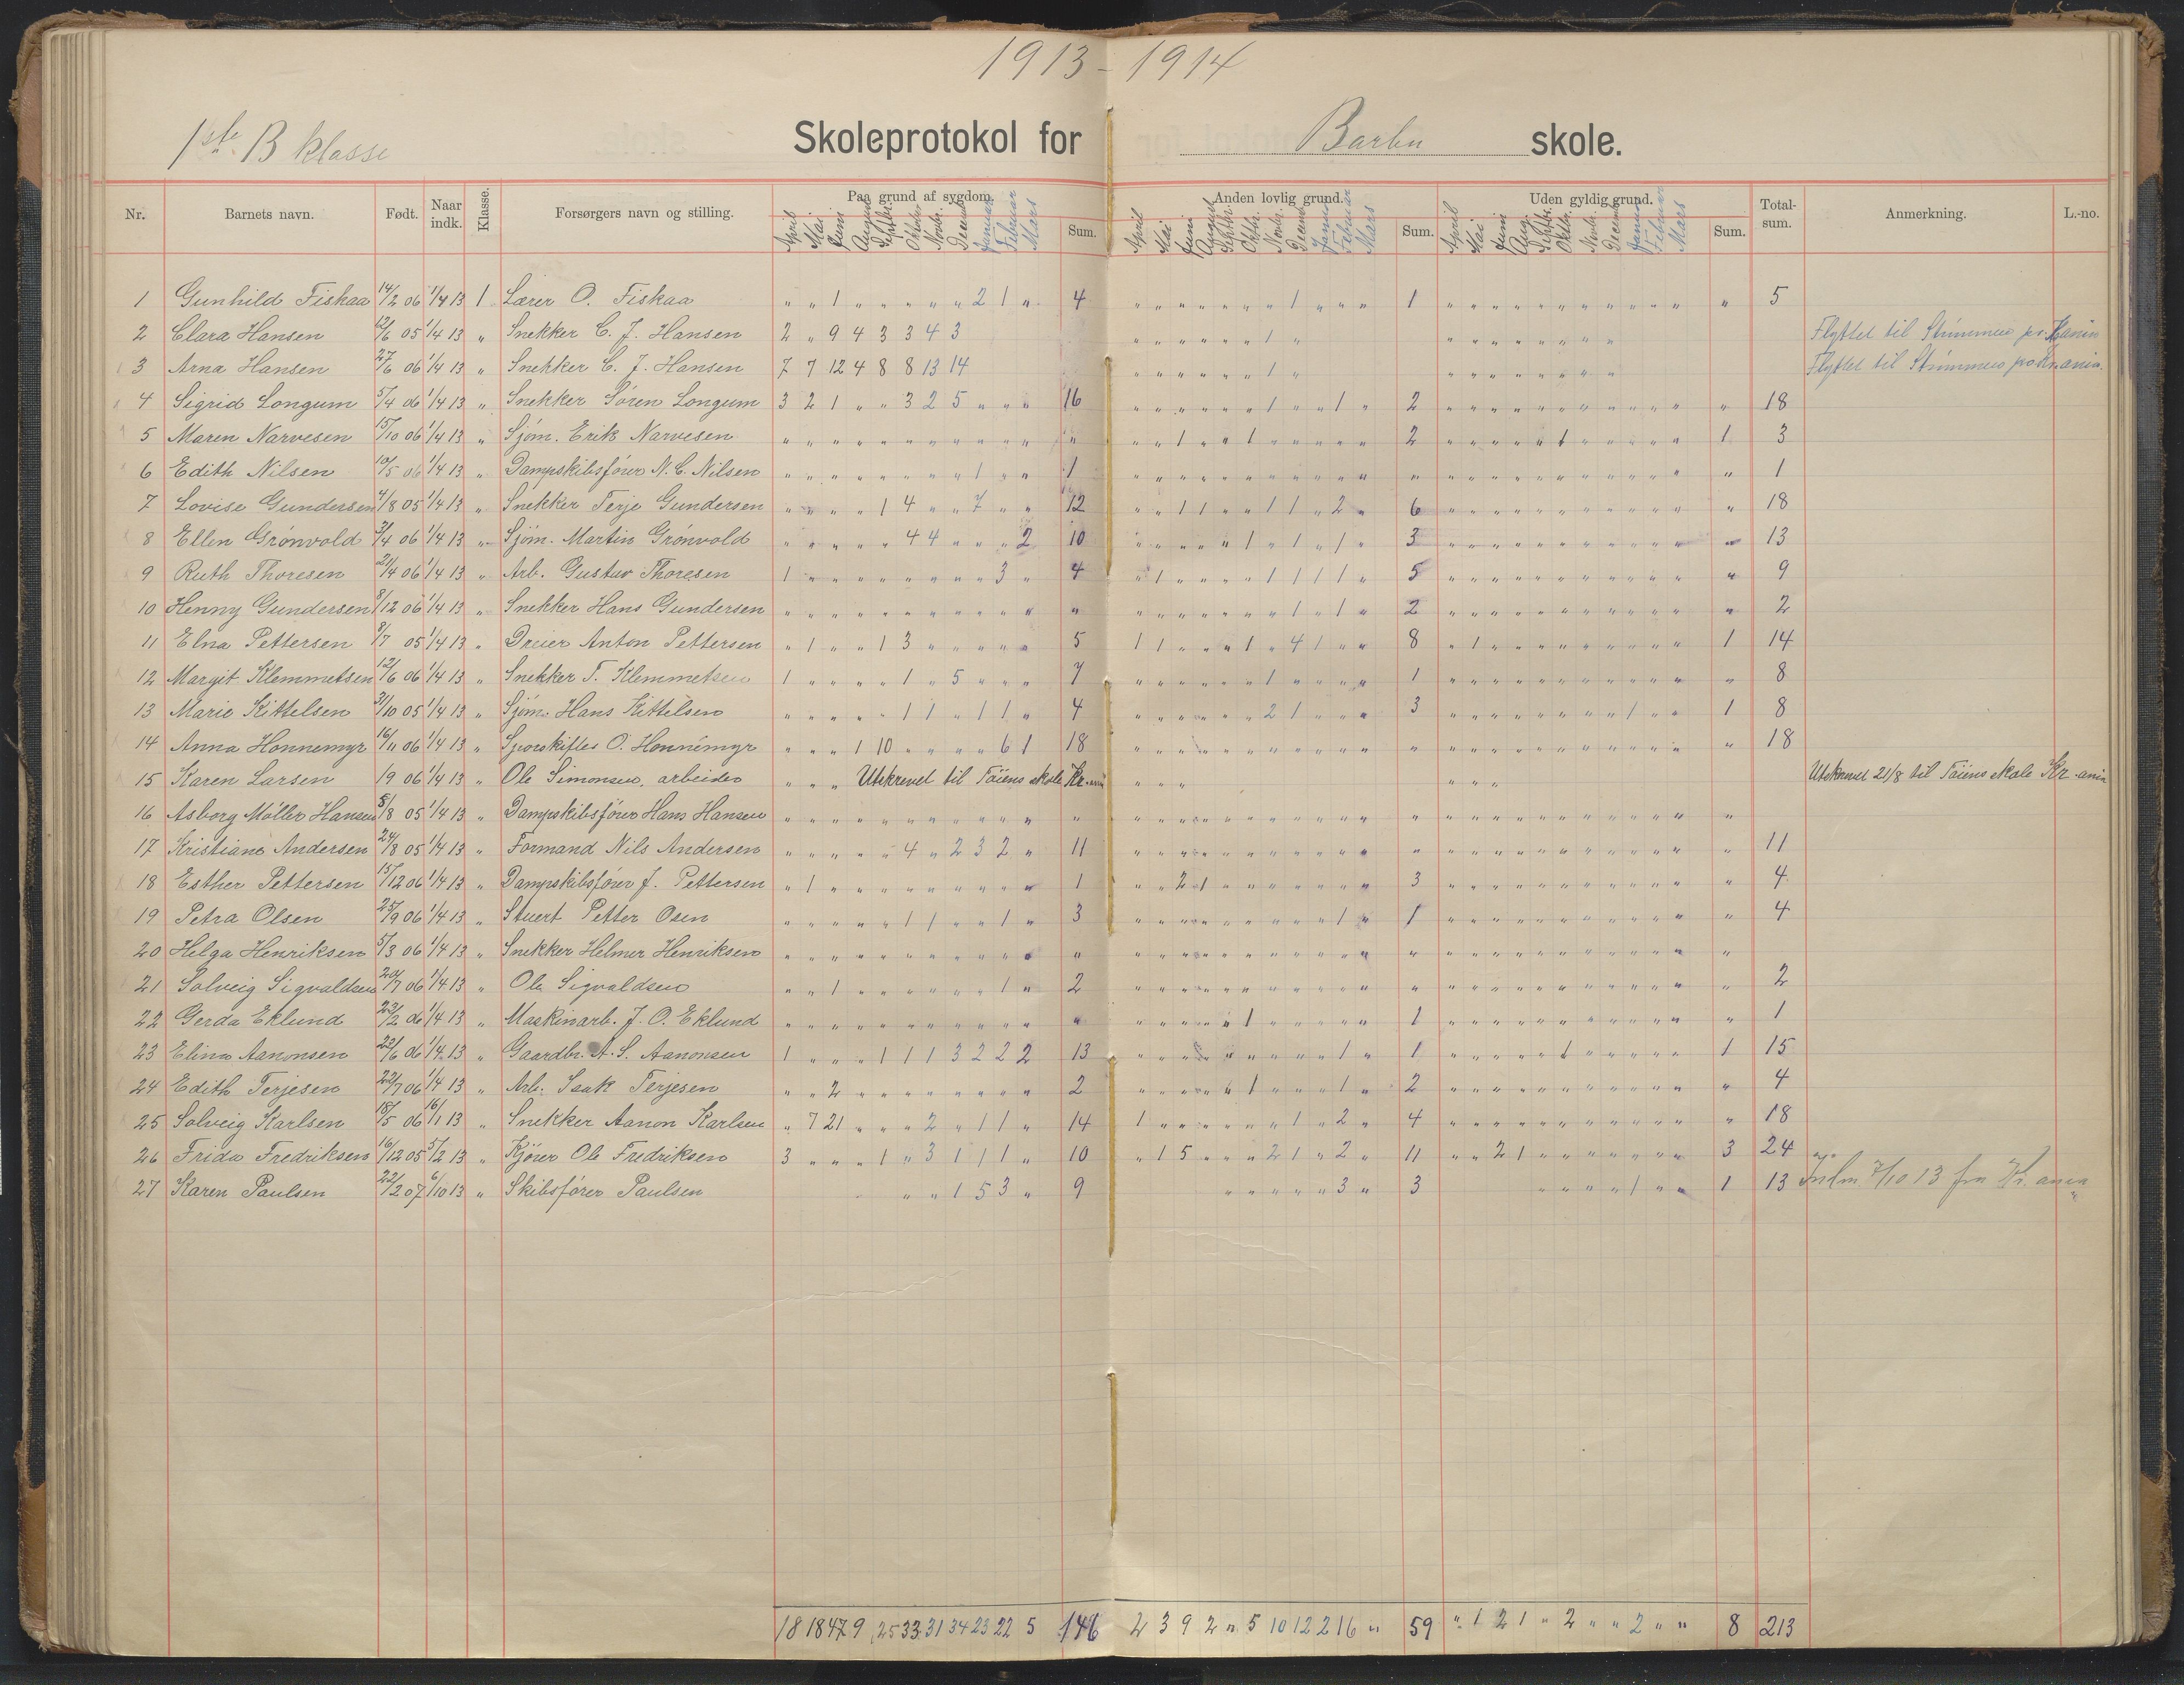 1913-1914
1ste B klasse Skoleprotokol for Barbu skole.
Nr. Barnets navn. Født. Naar indk. Klasse. Forsørgers navn og stilling. Paa grund af sygdom. Sum. Anden lovlig grund. Sum. Uden gyldig grund. Sum. Total-sum. Anmerkning. L.-no.
April Mai Juni August Septbr. Oktober Novbr. Decemb. Januar Februar Mars April Mai Juni August Septbr. Oktbr. Novbr. Decemb. Januar Februar Mars April Mai Juni Aug. Septbr. Oktbr. Novbr. Decemb. Januar Februar Mars
1 Gunhild Fiskaa 14/2 06 1/4 13 1 Lærer O. Fiskaa " " 1 " " " " " 2 1 " 4 " " " " " " " 1 " " " 1 " " " " " " " " " " " " 5
2 Clara Hansen 12/6 05 1/4 13 " Snekker C. J. Hansen 2 " 9 4 3 3 4 3 " " " " " " 1 " " " " " " " " " Flyttet til Strømmen pr. Kr.ania
3 Arna Hansen 27/6 06 1/4 13 " Snekker C. J. Hansen 7 7 12 4 8 8 13 14 " " " " " " 1 " " " " " " " " " Flyttet til Strømmen pr. Kr.ania.
4 Sigrid Longum 5/4 06 1/4 13 " Snekker Søren Longum 3 2 1 " " 3 2 5 " " " 16 " " " " " " 1 " " 1 " 2 " " " " " " " " " " " " 18
5 Maren Narvesen 15/10 06 1/4 13 " Sjøm. Erik Narvesen " " " " " " " " " " " " " " 1 " " 1 " " " " " 2 " " " " " 1 " " " " " 1 3
6 Edith Nilsen 10/5 06 1/4 13 " Dampskibsfører N. C. Nilsen " " " " " " " " 1 " " 1 " " " " " " " " " " " " " " " " " " " " " " " " 1
7 Lovise Gundersen 4/8 05 1/4 13 " Snekker Terje Gundersen " " " " 1 4 " " 7 " " 12 " " 1 1 " " 1 1 " 2 " 6 " " " " " " " " " " " " 18
8 Ellen Grønvold 3/4 06 1/4 13 " Sjøm. Martin Grønvold " " " " " 4 4 " " " 2 10 " " " " " 1 " 1 " 1 " 3 " " " " " " " " " " " " 13
9 Ruth Thoresen 21/4 06 1/4 13 " Arb. Gustav Thoresen 1 " " " " " " " " 3 " 4 " 1 " " " " 1 1 1 1 " 5 " " " " " " " " " " " " 9
10 Henny Gundersen 8/12 06 1/4 13 " Snekker Hans Gundersen " " " " " " " " " " " " " " " " " " " 1 " 1 " 2 " " " " " " " " " " " " 2
11 Elna Pettersen 8/7 05 1/4 13 " Dreier Anton Pettersen " 1 " " 1 3 " " " " " 5 1 1 " " " 1 " 4 1 " " 8 " 1 " " " " " " " " " 1 14
12 Margit Klemmetsen 12/6 06 1/4 13 " Snekker T. Klemmetsen 1 " " " " 1 " 5 " " " 7 " " " " " " 1 " " " " 1 " " " " " " " " " " " " 8
13 Marie Kittelsen 31/10 05 1/4 13 " Sjøm. Hans Kittelsen " " " " " 1 1 " 1 1 " 4 " " " " " " 2 1 " " " 3 " " " " " " " " 1 " " 1 8
14 Anna Honnemyr 16/11 06 1/4 13 " Sporskifter O. Honnemyr " " " 1 10 " " " " 6 1 18 " " " " " " " " " " " " " " " " " " " " " " " " 18
15 Karen Larsen 19 06 1/4 13 " Ole Simonsen, arbeider " " " Utskrevet til Tøiens skole Kr.ania " " " " " " Utskrevet 21/8 til Tøiens skole Kr.ania
16 Asborg Møller Hansen 5/8 05 1/4 13 " Dampskibsfører Hans Hansen " " " " " " " " " " " " " " " " " " " " " " " " " " " " " " " " " " " "
17 Kristiane Andersen 24/8 05 1/4 13 " Formand Nils Andersen " " " " " 4 " 2 3 2 " 11 " " " " " " " " " " " " " " " " " " " " " " " " 11
18 Esther Pettersen 15/12 06 1/4 13 " Dampskibsfører J. Pettersen " 1 " " " " " " " " " 1 " " 2 1 " " " " " " " 3 " " " " " " " " " " " " 4
19 Petra Olsen 25/9 06 1/4 13 " Stuert Petter Osen " " " " " 1 1 " " 1 " 3 " " " " " " " " " 1 " 1 " " " " " " " " " " " " 4
20 Helga Henriksen 5/3 06 1/4 13 " Snekker Helmer Henriksen " " " " " " " " " " " " " " " " " " " " " " " " " " " " " " " " " " " "
21 Solveig Sigvaldsen 20/7 06 1/4 13 " Ole Sigvaldsen " " 1 " " " " " " 1 " 2 " " " " " " " " " " " " " " " " " " " " " " " " 2
22 Gerda Eklund 23/2 06 1/4 13 " Maskinarb. J. O. Eklund " " " " " " " " " " " " " " " " " 1 " " " " " 1 " " " " " " " " " " " " 1
23 Elina Aanonsen 22/6 06 1/4 13 " Gaardbr. A. S. Aanonsen 1 " " " 1 1 1 3 2 2 2 13 " " " " " " " " " 1 " 1 " " " " " 1 " " " " " 1 15
24 Edith Terjesen 22/7 06 1/4 13 " Arb. Isak Terjesen " " 2 " " " " " " " " 2 " " " " " 1 " " " 1 " 2 " " " " " " " " " " " " 4
25 Solveig Karlsen 18/5 06 16/1 13 " Snekker Aanon Karlsen " 7 21 " " " 2 " 1 1 " 14 1 " " " " " " 1 " 2 " 4 " " " " " " " " " " " " 18
26 Frida Fredriksen 16/12 05 5/2 13 " Kjører Ole Fredriksen 3 " " " 1 " 3 1 1 1 " 10 " 1 5 " " " 2 1 " 2 " 11 " " 2 1 " " " " " " " 3 24
27 Karen Paulsen 22/2 07 6/10 13 " Skibsfører Paulsen " " 1 5 3 " 9 " " " " " 3 " 3 " " " " 1 " " 1 13 Indm 7/10 13 fra Kr.ania
18 18 47 9 25 33 31 34 23 22 5 146 2 3 9 2 " 5 10 12 2 16 " 59 " 1 2 1 " 2 " " 2 " " 8 213